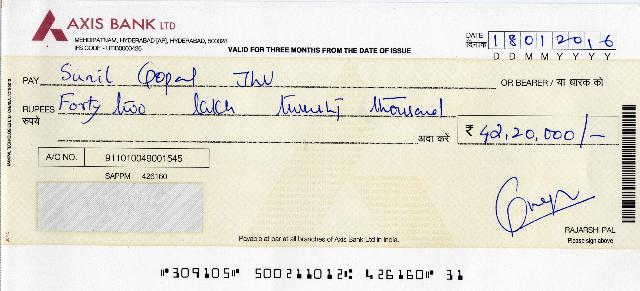 AXIS BANK LTD
MEHDIPATNAM, HYDERABAD [AP], HYDERABAD, 500028
IFS CODE - UTIB0000426
VALID FOR THREE MONTHS FROM THE DATE OF ISSUE
DATE दिनांक 18012016
D D M M Y Y Y Y
PAY Sunil Gopal Jhv OR BEARER / या धारक को
RUPEES रुपये Forty two lakh twenty thousand
अदा करें ₹ 42,20,000/-
A/C NO. 911010049001545
SAPPM 426160
RAJARSHI PAL
Please sign above
Payable at par at all branches of Axis Bank Ltd in India.
⑈309105⑈ 500211012⑆ 426160⑈ 31